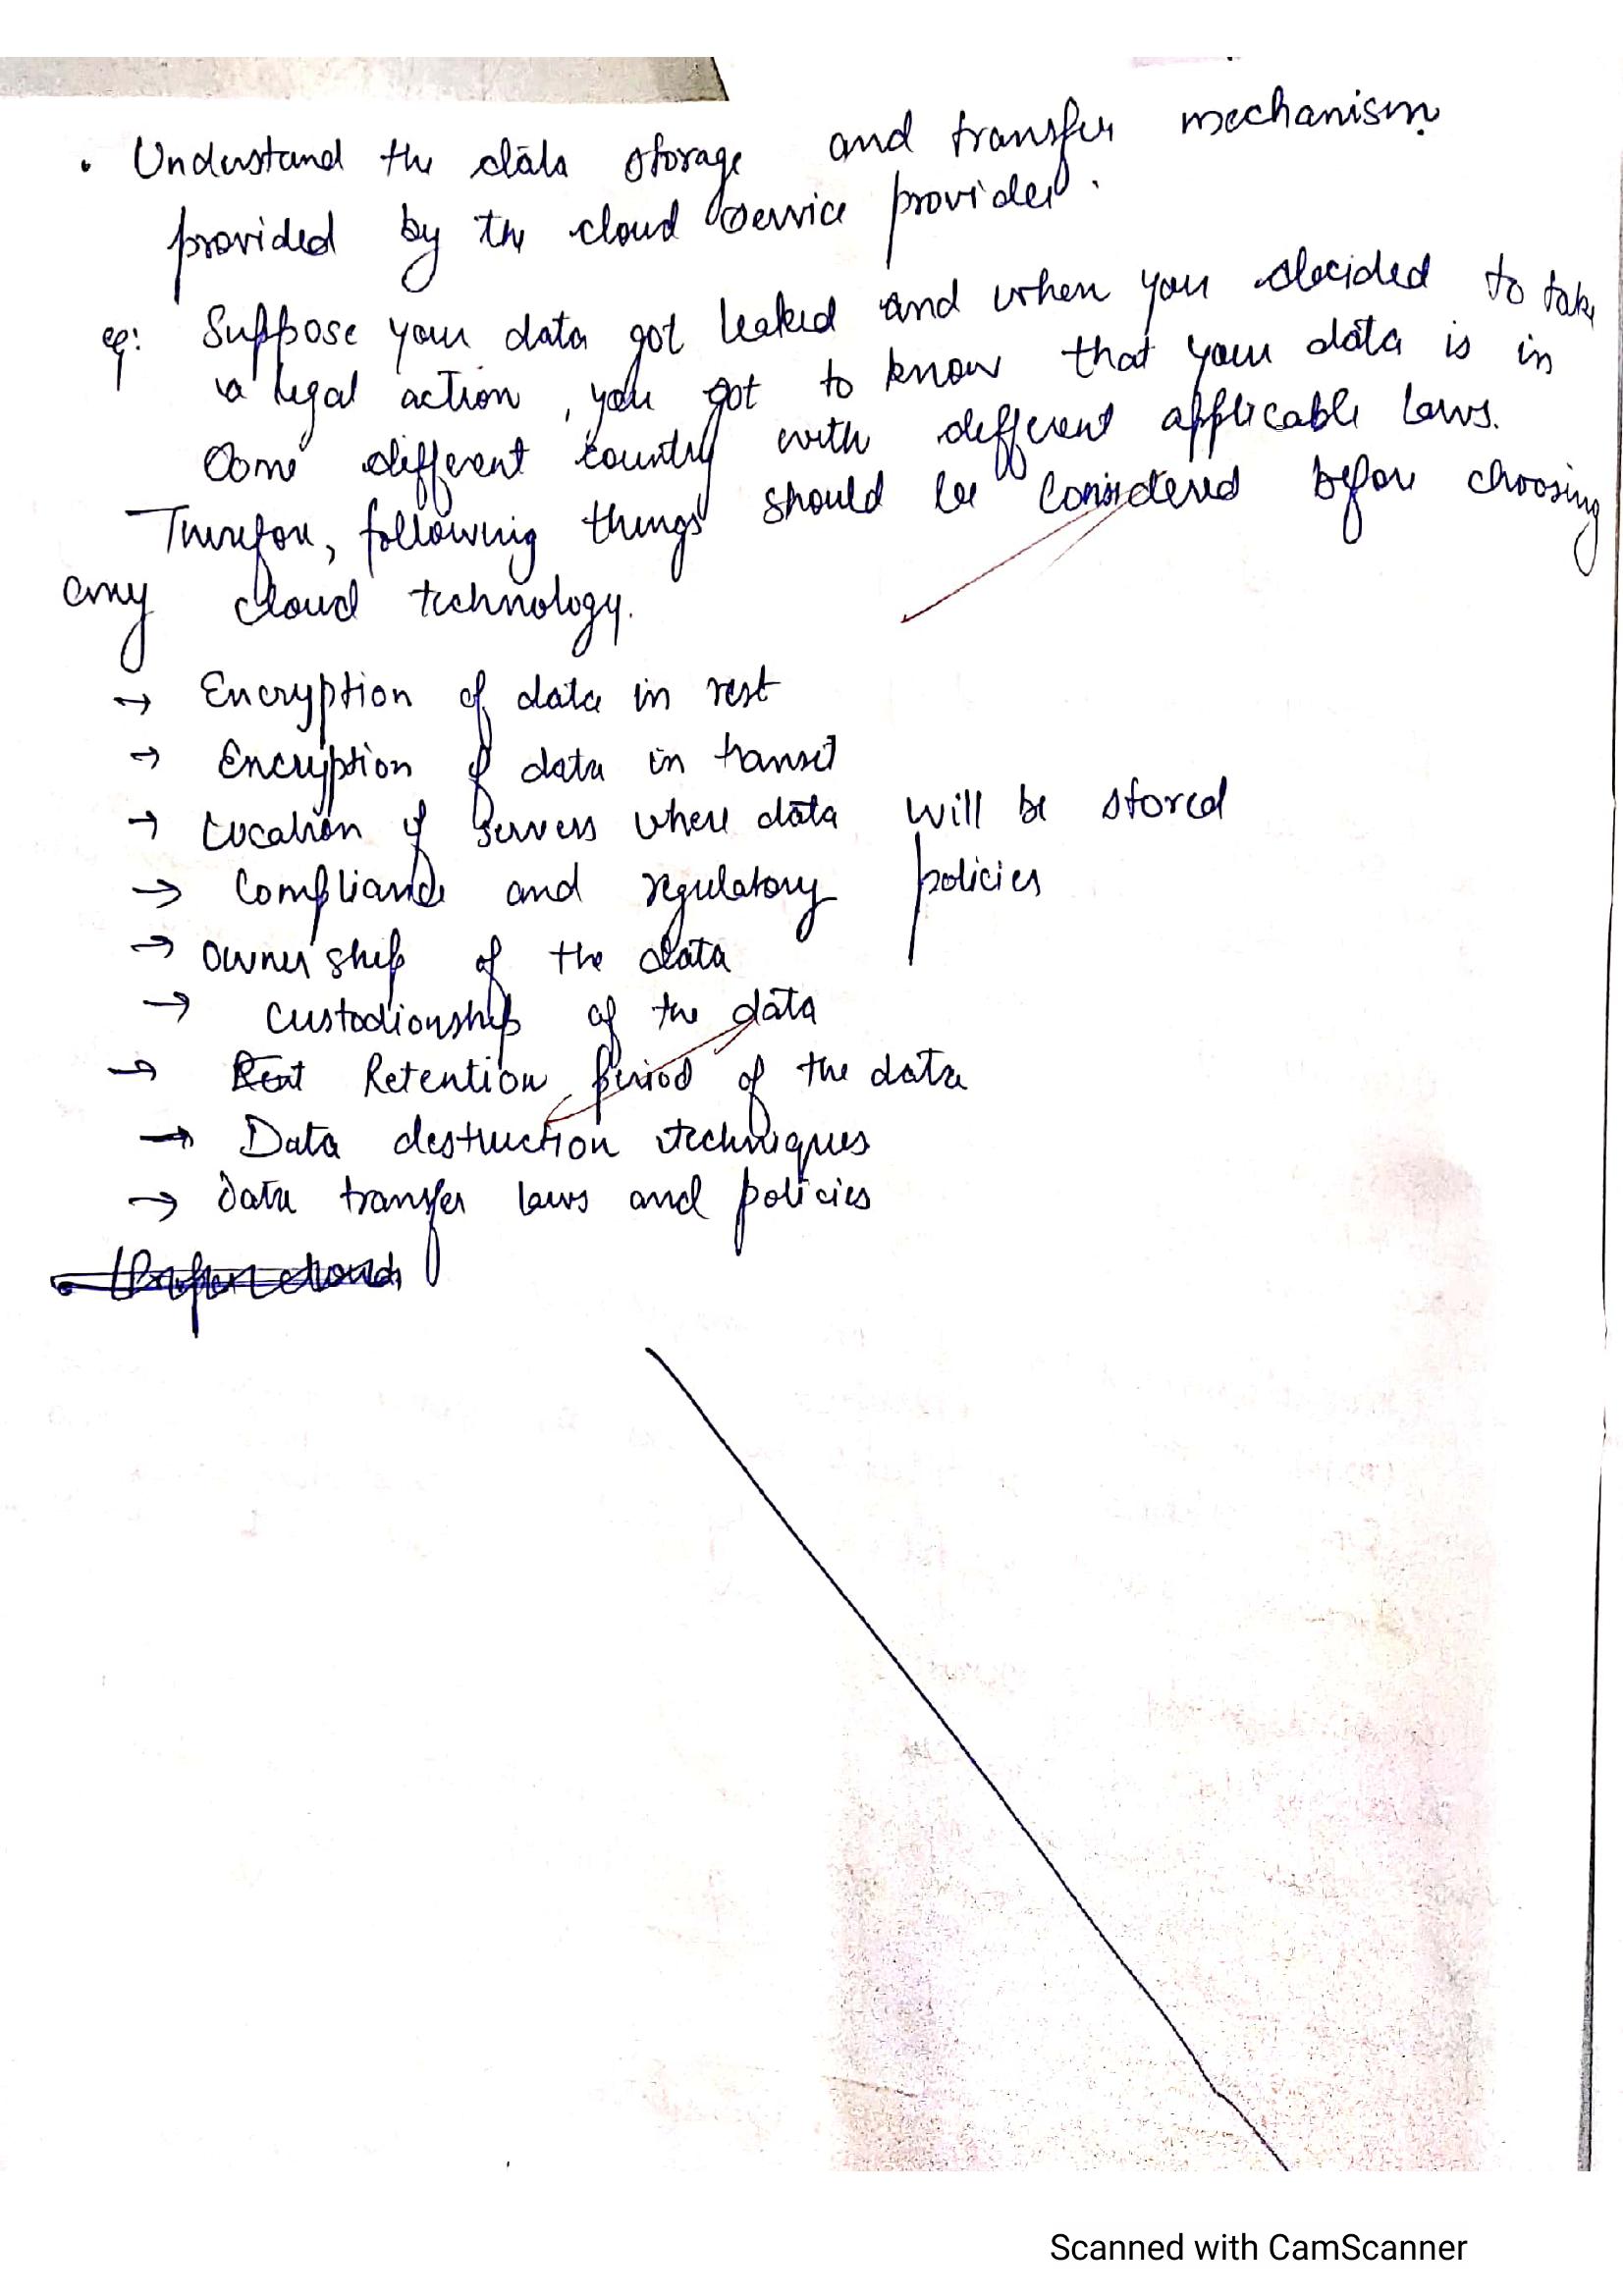 • Understand the data storage and transfer mechanism
provided by the cloud service provider.
eg: Suppose your data got leaked and when you decided to take
a legal action, you got to know that your data is in
some different country with different applicable laws.
Therefore, following things should be considered before choosing
any cloud technology.
→ Encryption of data in rest
→ Encryption of data in transit
→ Location of servers where data will be stored
→ Compliance and regulatory policies
→ Ownership of the data
→ Custodionship of the data
→ Retention period of the data
→ Data destruction techniques
→ Data transfer laws and policies
Scanned with CamScanner